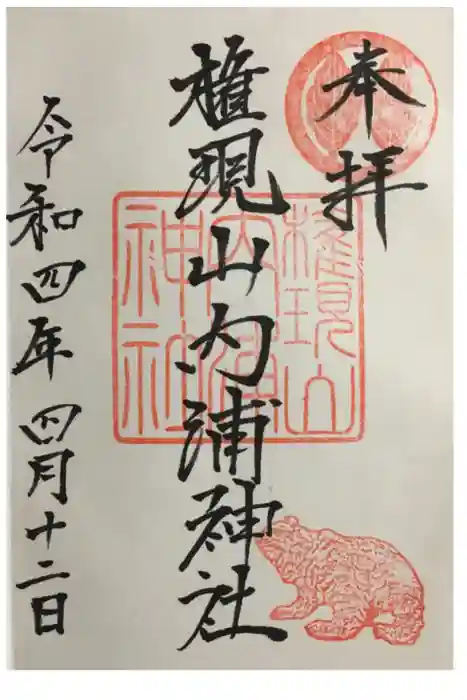 奉拝
権現山内浦神社
令和四年 四月十二日
権現山
内浦
神社